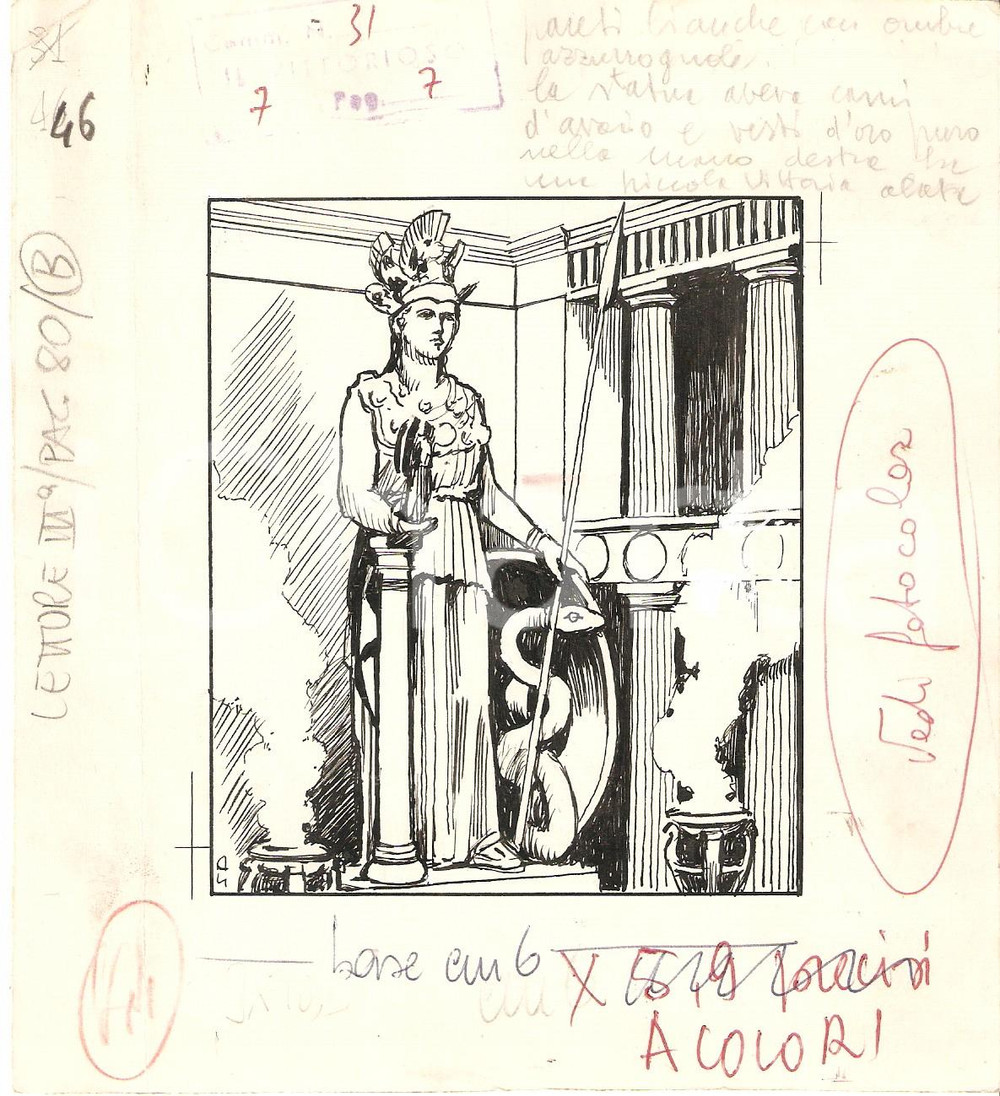 31
46
Comm. N. 31
IL VITTORIOSO
7 Pag. 7
pareti bianche con ombre
azzurrognole.
la statua aveva carni
d'avorio e vesti d'oro puro
nella mano destra ha
una piccola Vittoria alata
LETTORE IIIª/PAG 80/B
Vedi fotocolor
base cm 6
X 5,9
A COLORI